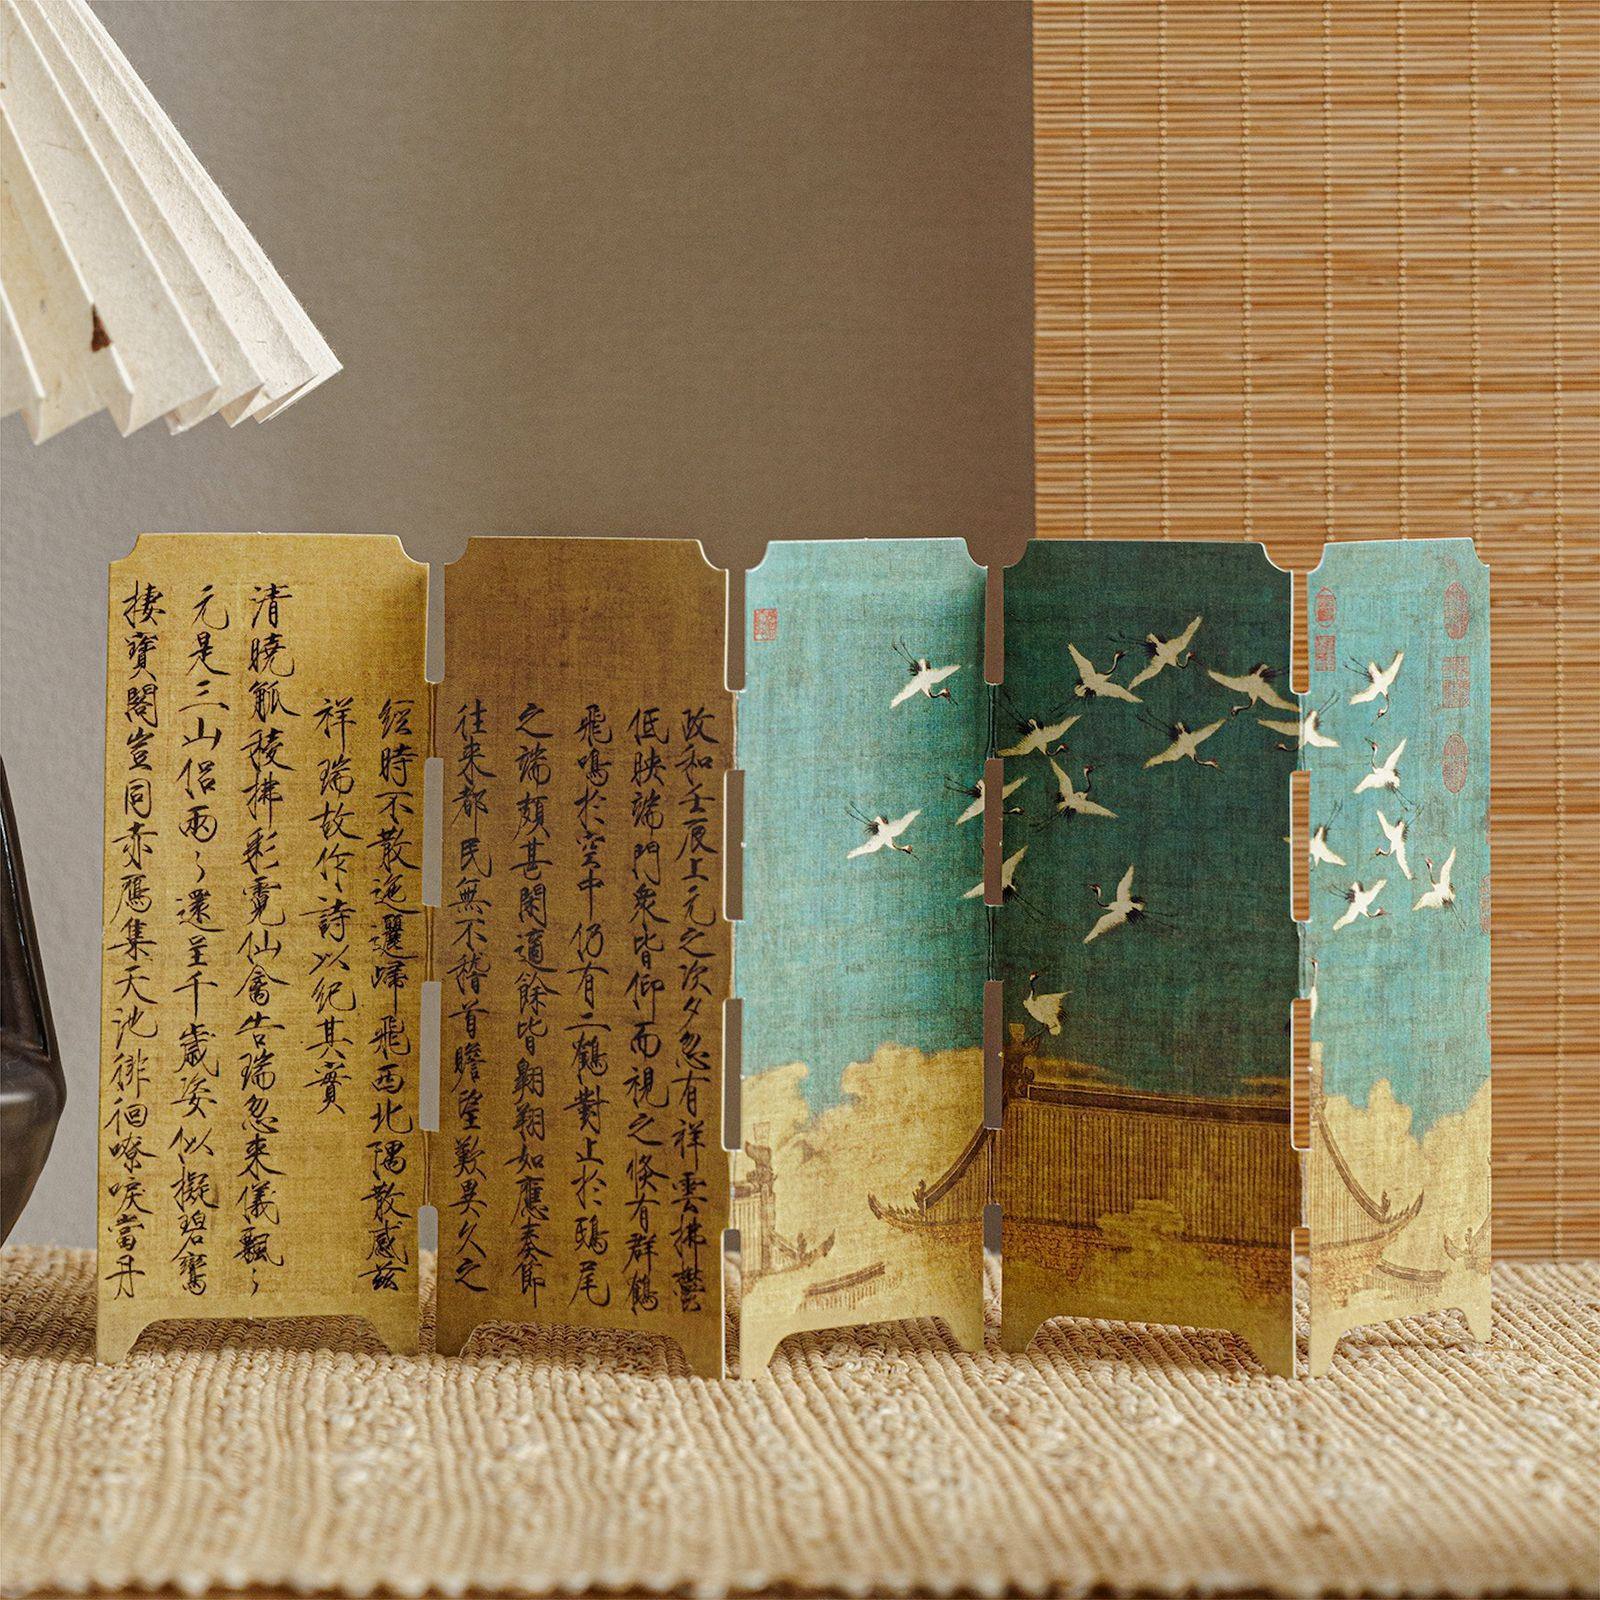 政和壬辰上元之次夕忽有祥雲拂鬱
低映端門衆皆仰而視之倏有群鶴
飛鳴於空中仍有二鶴對止於鴟尾
之端頗甚閑適餘皆翱翔如應奏節
往来都民無不稽首瞻望歎異久之
經時不散迤邐歸飛西北隅散感茲
祥瑞故作詩以紀其實
清曉觚稜拂彩霓仙禽告瑞忽来儀飄〻
元是三山侶兩〻還呈千歲姿似擬碧鸞
棲寶閣豈同赤鴈集天池徘徊嘹唳當丹